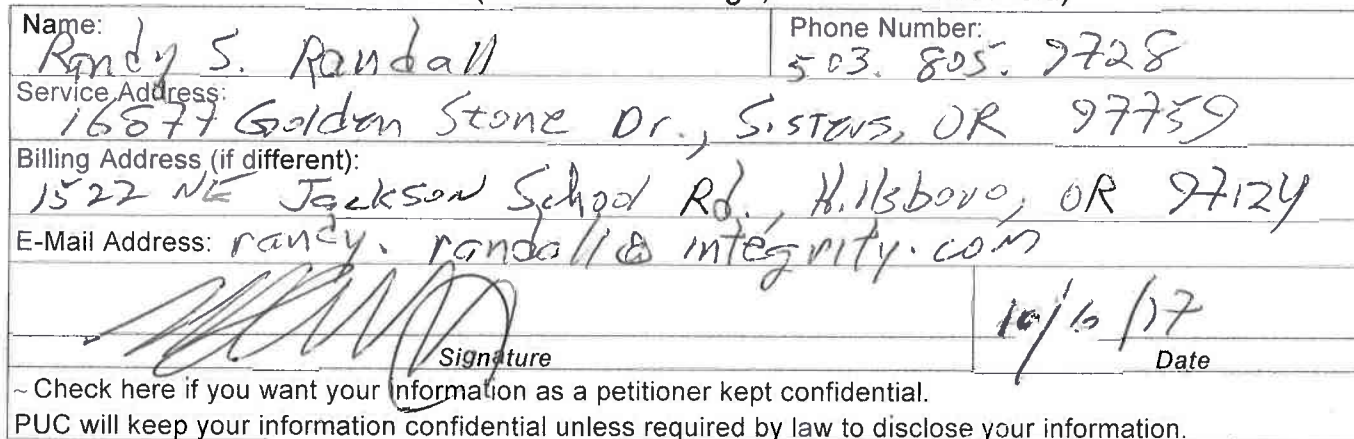 Name:
Randy S. Randall
Phone Number:
503. 805. 9728
Service Address:
16877 Golden Stone Dr., Sisters, OR 97759
Billing Address (if different):
1522 NE Jackson School Rd., Hillsboro, OR 97124
E-Mail Address: randy.randall@integrity.com
Signature
Date
~ Check here if you want your information as a petitioner kept confidential.
PUC will keep your information confidential unless required by law to disclose your information.